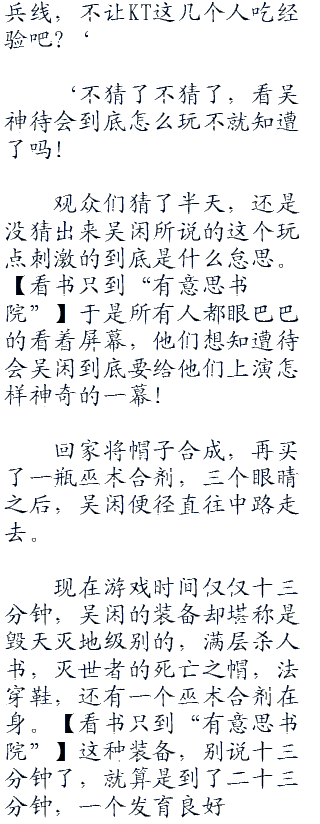 兵线，不让KT这几个人吃经
验吧？‘
‘不猜了不猜了，看吴
神待会到底怎么玩不就知遭
了吗！
观众们猜了半天，还是
没猜出来吴闲所说的这个玩
点刺激的到底是什么怠思。
【看书只到“有意思书
院”】于是所有人都眼巴巴
的看着屏幕，他们想知遭待
会吴闲到底要给他们上演怎
样神奇的一幕！
回家将帽子合成，再买
了一瓶巫术合剂，三个眼睛
之后，吴闲便径直往中路走
去。
现在游戏时间仅仅十三
分钟，吴闲的装备却堪称是
毁天灭地级别的，满层杀人
书，灭世者的死亡之帽，法
穿鞋，还有一个巫术合剂在
身。【看书只到“有意思书
院”】这种装备，别说十三
分钟了，就算是到了二十三
分钟，一个发育良好